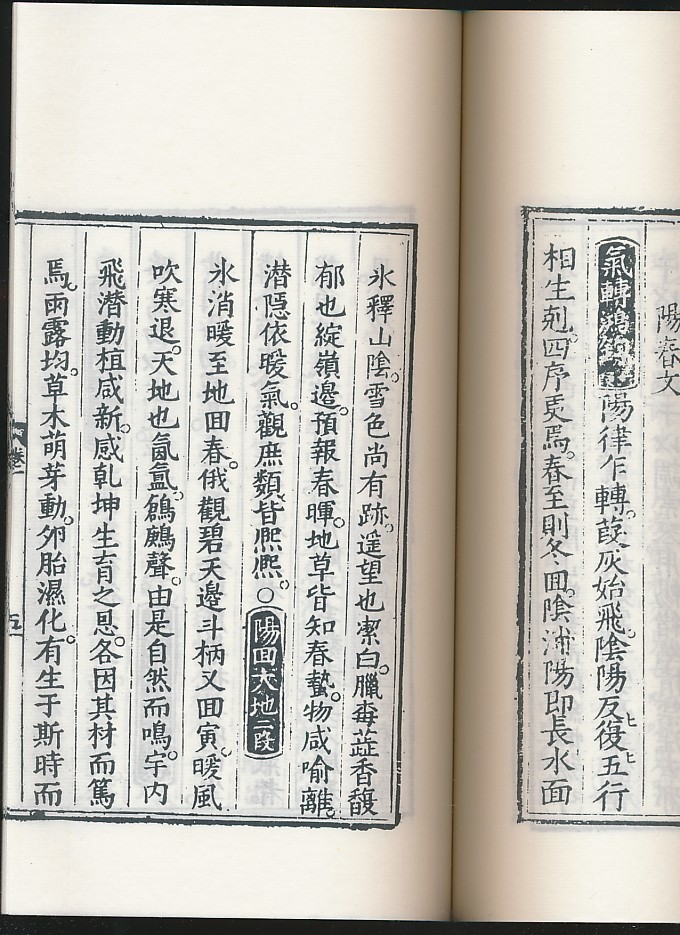 陽春文
氣轉鴻鈞 陽律乍轉。葭灰始飛。陰陽反復。五行
相生剋。四序更焉。春至則冬回。陰消陽即長。水面
氷釋山陰。雪色尚有跡。遥望也潔白。臘毒蕋香馥
郁也綻嶺邊。預報春暉。地草皆知春。蟄物咸喻離。
潜隱依暖氣。觀庶類皆熈熈。○陽回大地二段
氷消暖至地回春。俄觀碧天邊斗柄又回寅。暖風
吹寒退。天地也氤氳。鶬鶊聲。由是自然而鳴。宇内
飛潜動植咸新。感乾坤生育之恩。各因其材而篤
焉。雨露均。草木萌芽動。卵胎濕化。有生于斯時而
卷一
五